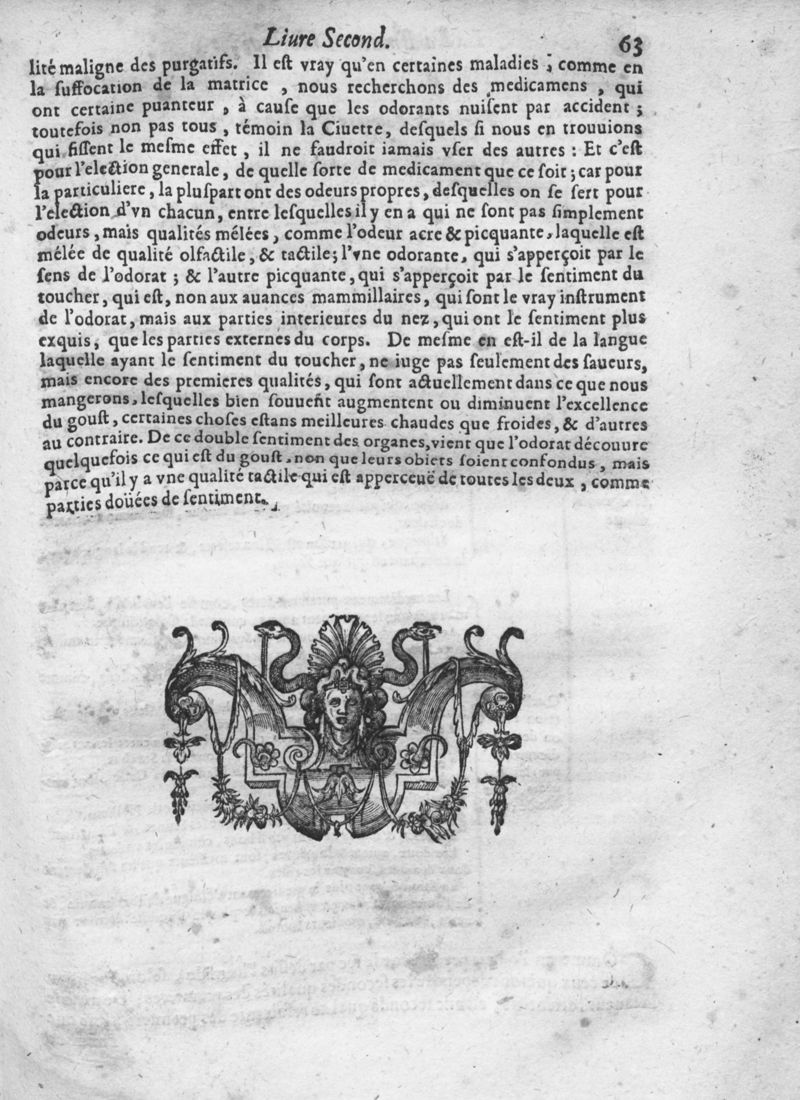 Liure Second. 63
lité maligne des purgatifs. Il eſt vray qu'en certaines maladies, comme en
la ſuffocation de la matrice, nous recherchons des medicamens, qui
ont certaine puanteur, à cauſe que les odorants nuiſent par accident;
toutefois non pas tous, témoin la Ciuette, deſquels ſi nous en trouuions
qui fiſſent le meſme effet, il ne faudroit iamais vſer des autres: Et c'eſt
pour l'election generale, de quelle ſorte de medicament que ce ſoit; car pour
la particuliere, la pluſpart ont des odeurs propres, deſquelles on ſe ſert pour
l'election d'vn chacun, entre leſquelles il y en a qui ne ſont pas ſimplement
odeurs, mais qualités mélées, comme l'odeur acre & picquante, laquelle eſt
mélée de qualité olfactile, & tactile; l'vne odorante, qui s'apperçoit par le
ſens de l'odorat; & l'autre picquante, qui s'apperçoit par le ſentiment du
toucher, qui eſt, non aux auances mammillaires, qui ſont le vray inſtrument
de l'odorat, mais aux parties interieures du nez, qui ont le ſentiment plus
exquis, que les parties externes du corps. De meſme en eſt-il de la langue
laquelle ayant le ſentiment du toucher, ne iuge pas ſeulement des ſaueurs,
mais encore des premieres qualités, qui ſont actuellement dans ce que nous
mangerons, leſquelles bien ſouuent augmentent ou diminuent l'excellence
du gouſt, certaines choſes eſtans meilleures chaudes que froides, & d'autres
au contraire. De ce double ſentiment des organes, vient que l'odorat découure
quelquefois ce qui eſt du gouſt, non que leurs obiets ſoient confondus, mais
parce qu'il y a vne qualité tactile qui eſt apperceuë de toutes les deux, comme
parties doüées de ſentiment.